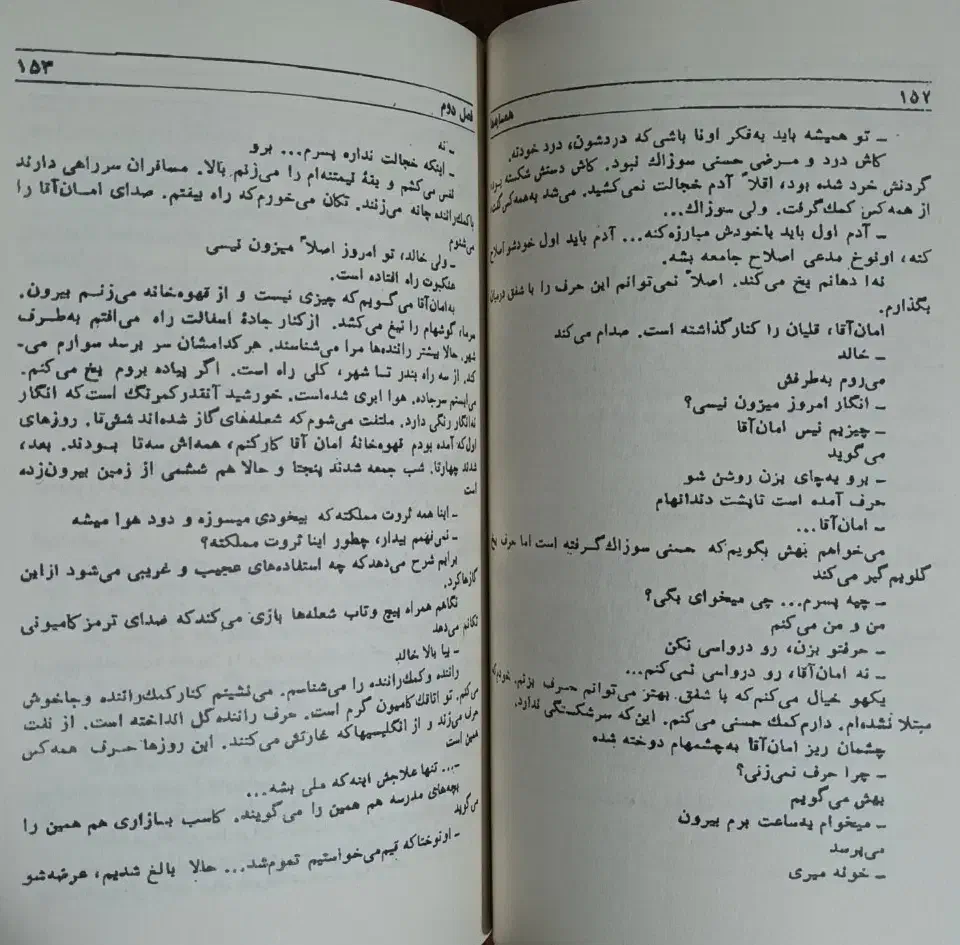 ۱۵۲
همسایه‌ها
ــ تو همیشه باید به‌فکر اونا باشی‌که دردشون، درد خودته.
کاش درد و مـرضی حسنی سوزاك نبود. کاش دستش شکسته بود،
گردنش خرد شده بود، اقلاً آدم خجالت نمی‌کشید. می‌شد به‌همه‌کس‌گفت،
از همه‌کس کمك‌گرفت. ولی سوزاك...
ــ آدم اول باید باخودش مبارزه‌کنه... آدم باید اول خودشو اصلاح
کنه، اونوخ مدعی اصلاح جامعه بشه.
نه! دهانم یخ می‌کند. اصلاً نمی‌توانم این حرف را با شفق درمیان
بگذارم.
امان‌آقا، قلیان را کنارگذاشته است. صدام می‌کند
ــ خالد
می‌روم به‌طرفش
ــ انگار امروز میزون نیسی؟
ــ چیزیم نیس امان‌آقا
می‌گوید
ــ برو یه‌چای بزن روشن شو
حرف آمده است تاپشت دندانهام
ــ امان‌آقا...
می‌خواهم بهش بگویم‌که حسنی سوزاك‌گـرفته است اما حرف یخ
گلویم‌گیر می‌کند
ــ چیه پسرم... چی میخوای بگی؟
من و من می‌کنم
ــ حرفتو بزن، رو درواسی نکن
ــ نه امان‌آقا، رو درواسی نمی‌کنم...
یکهو خیال می‌کنم‌که با شفق، بهتر می‌توانم حـرف بزنم. خودم‌که
مبتلا نشده‌ام. دارم‌کمك حسنی می‌کنم. این‌که سرشکستگی ندارد.
چشمان ریز امان‌آقا به‌چشمهام دوخته شده
ــ چرا حرف نمی‌زنی؟
بهش می‌گویم
ــ میخوام یه‌ساعت برم بیرون
می‌پرسد
ــ خونه میری
۱۵۳
فصل دوم
ــ نه
ــ اینکه خجالت نداره پسرم... برو
نفس می‌کشم و یقهٔ نیمتنه‌ام را می‌زنم بالا. مسافران سرراهی دارند
باکمك‌راننده چانه می‌زنند. تکان می‌خورم‌که راه بیفتم. صدای امـان‌آقا را
می‌شنوم
ــ ولی خالد، تو امروز اصلاً میزون نیسی
عنکبوت راه افتاده است.
به‌امان‌آقا می‌گـویم‌که چیزی نیست و از قهوه‌خانه می‌زنـم بیرون.
سرما، گوشهام را تیغ می‌کشد. ازکنار جادهٔ اسفالت راه می‌افتم به‌طـرف
شهر. حالا بیشتر راننده‌ها مرا می‌شناسند. هرکدامشان سر برسد سوارم می‌ـ
کند. از سه راه بندر تـا شهر، کلی راه است. اگر پیاده بروم یخ می‌کنم.
می‌ایستم سرجاده. هوا ابری شده‌است. خورشید آنقدرکمرنگ است‌که انگار
نه‌انگار رنگی دارد. ملتفت می‌شوم‌که شعله‌های گاز شده‌اند شش‌تا. روزهای
اول‌که آمده بودم قهوه‌خانهٔ امان آقا کارکنم، همه‌اش سه‌تا بـودند. بعد،
شدند چهارتا. شب جمعه شدند پنج‌تا و حالا هم ششمی از زمین بیرون‌زده
است
ــ اینا همه ثروت مملکته‌که بیخودی میسوزه و دود هوا میشه
ــ نمی‌فهمم بیدار، چطور اینا ثروت مملکته؟
برایم شرح می‌دهدکه چه استفاده‌های عجیب و غریبی می‌شود ازاین
گازهاکرد.
نگاهم همراه پیچ وتاب شعله‌ها بازی می‌کندکه صدای ترمزکامیونی
تکانم می‌دهد
ــ بیا بالا خالد
راننده وکمك‌راننده را می‌شناسم. می‌نشینم کنارکمك‌راننده وجاخوش
می‌کنم. تو اتاقك‌کامیون گرم است. حرف راننده‌گل انداخته است. از نفت
حرف می‌زند و از انگلیسیهاکه غارتش می‌کنند. این روزها حـرف همه‌کس
همین است
ــ... تنها علاجش اینه‌که ملی بشه...
بچه‌های مدرسه هم همین را می‌گویند. کاسب بـازاری هم همین را
می‌گوید
ــ اونوختاکه قیم می‌خواستیم تموم‌شد... حالا بالغ شدیم، عرضه‌شو